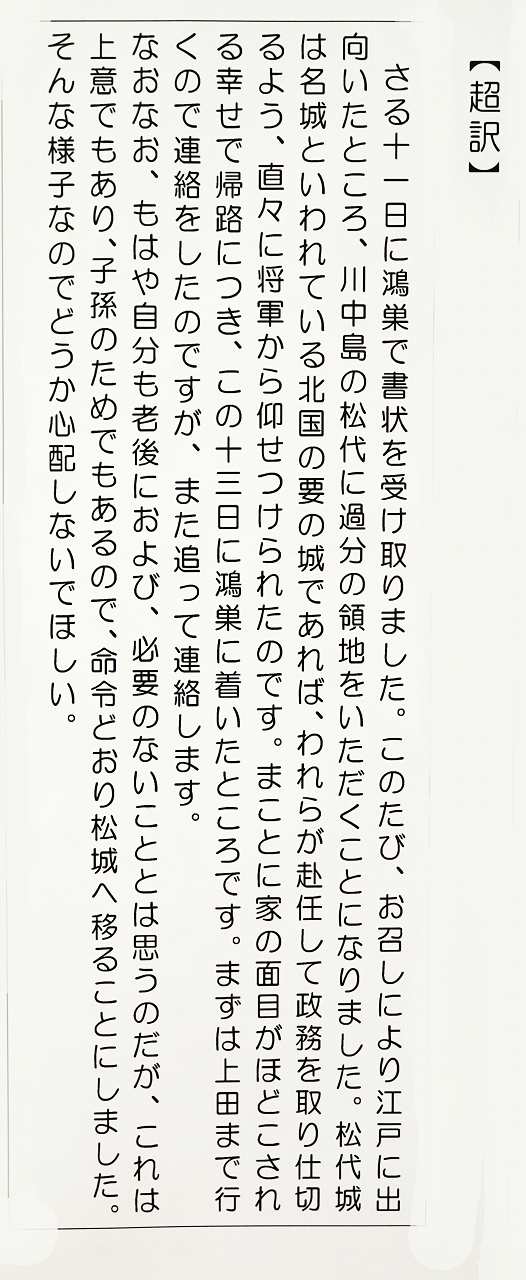 【超訳】
さる十一日に鴻巣で書状を受け取りました。このたび、お召しにより江戸に出
向いたところ、川中島の松代に過分の領地をいただくことになりました。松代城
は名城といわれている北国の要の城であれば、われらが赴任して政務を取り仕切
るよう、直々に将軍から仰せつけられたのです。まことに家の面目がほどこされ
る幸せで帰路につき、この十三日に鴻巣に着いたところです。まずは上田まで行
くので連絡をしたのですが、また追って連絡します。
なおなお、もはや自分も老後におよび、必要のないこととは思うのだが、これは
上意でもあり、子孫のためでもあるので、命令どおり松城へ移ることにしました。
そんな様子なのでどうか心配しないでほしい。